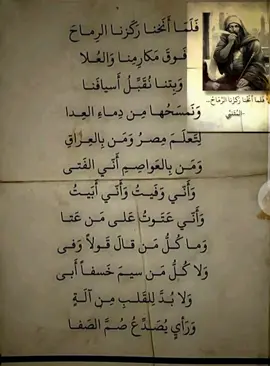 فَلَمّا أَنَخنا رَكَزنا الرِماحَ
فَوقَ مَكارِمِنا وَالعُلا
وَبِتنا نُقَبِّلُ أَسيافَنا
وَنَمسَحُها مِن دِماءِ العِدا
لِتَعلَمَ مِصرُ وَمَن بِالعِراقِ
وَمَن بِالعَواصِمِ أَنّي الفَتى
وَأَنّي وَفَيتُ وَأَنّي أَبَيتُ
وَأَنّي عَتَوتُ عَلى مَن عَتا
وَما كُلُّ مَن قالَ قَولاً وَفى
وَلا كُلُّ مَن سيمَ خَسفاً أَبى
وَلا بُدَّ لِلقَلبِ مِن آلَةٍ
وَرَأيٍ يُصَدِّعُ صُمَّ الصَفا
فلما أنخنا ركزنا الرماح..
-المتنبي